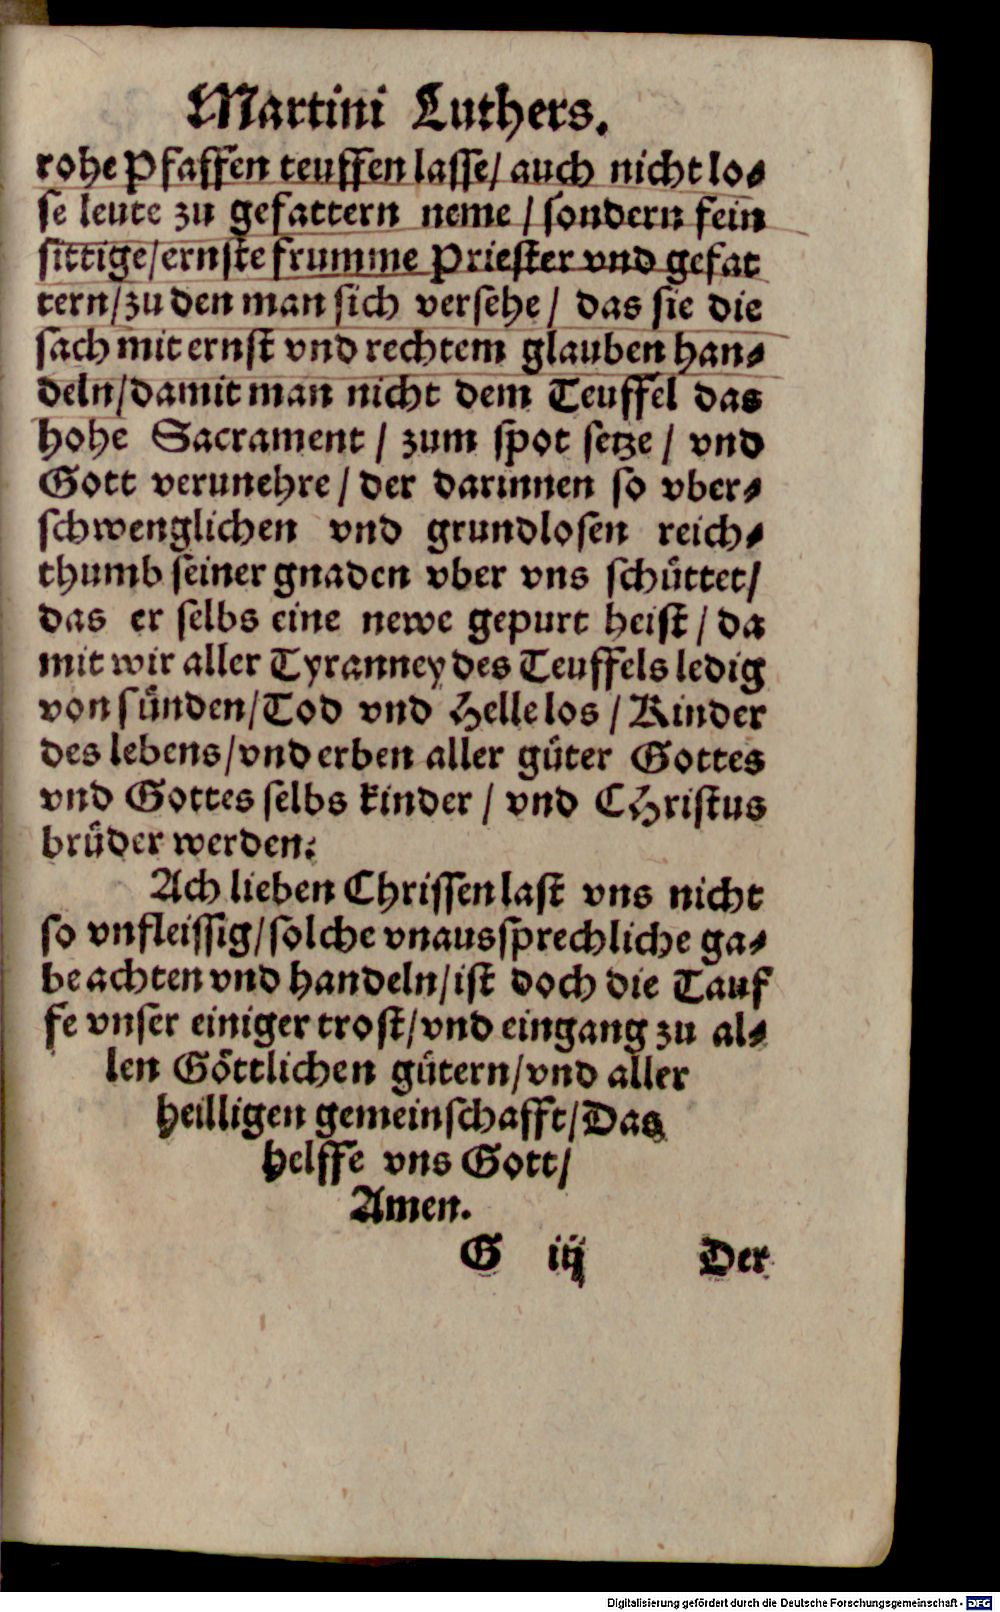 Martini Luthers.
rohe Pfaffen teuffen lasse/ auch nicht lo⸗
se leute zu gefattern neme / sondern fein
sittige/ ernste frumme Priester vnd gefat
tern/ zu den man sich versehe / das sie die
sach mit ernst vnd rechtem glauben han⸗
deln/ damit man nicht dem Teuffel das
hohe Sacrament / zum spot setze / vnd
Gott verunehre / der darinnen so vber⸗
schwenglichen vnd grundlosen reich⸗
thumb seiner gnaden vber vns schüttet/
das er selbs eine newe gepurt heist / da
mit wir aller Tyranney des Teuffels ledig
von sünden/ Tod vnd Helle los / Kinder
des lebens/ vnd erben aller güter Gottes
vnd Gottes selbs kinder / vnd CHristus
brüder werden.
Ach lieben Chrissen last vns nicht
so vnfleissig/ solche vnaussprechliche ga⸗
be achten vnd handeln/ ist doch die Tauf
fe vnser einiger trost/ vnd eingang zu al⸗
len Göttlichen gütern/ vnd aller
heilligen gemeinschafft/ Das
helffe vns Gott/
Amen.
G iij Der
Digitalisierung gefördert durch die Deutsche Forschungsgemeinschaft - DFG